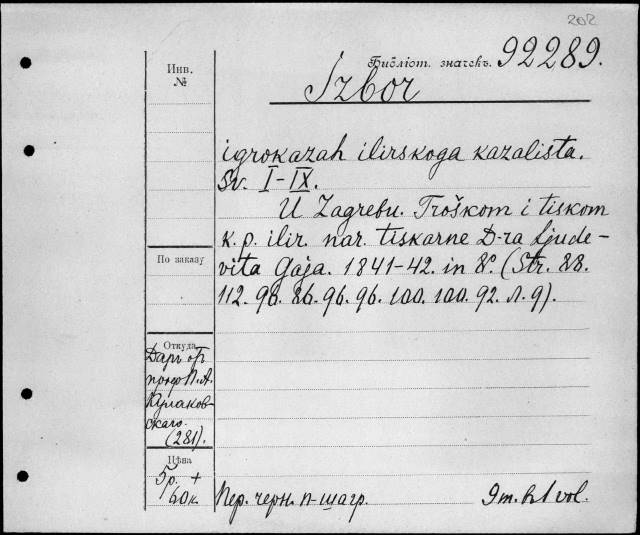 202
Инв.
№
Библіот. значекъ. 92289.
Izbor
igrokazah ilirskoga kazalista.
Sv. I-IX.
U Zagrebu. Troškom i tiskom
k. p. ilir. nar. tiskarne D-ra Ljude-
vita Gaja. 1841-42. in 8º. (Str. 88.
112. 96. 86. 96. 96. 100. 100. 92. л. 9).
По заказу
Откуда
Даръ от
проф П. А.
Кулаков-
скаго.
(281).
Цѣна
5 р. +
60 к.
Пер. черн. п-шагр.
9 т. в 1 vol.